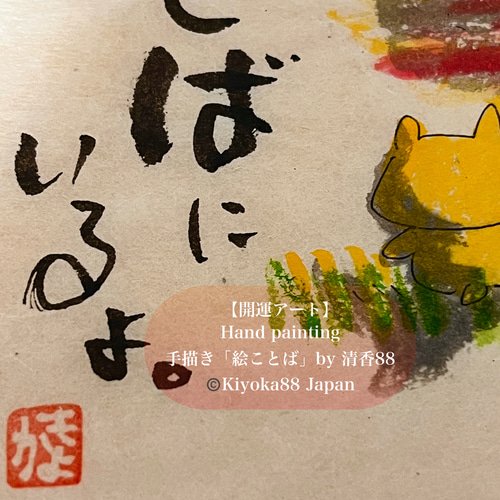 ばに
いるよ。
【開運アート】
Hand painting
手描き「絵ことば」by 清香88
©Kiyoka88 Japan
きよか